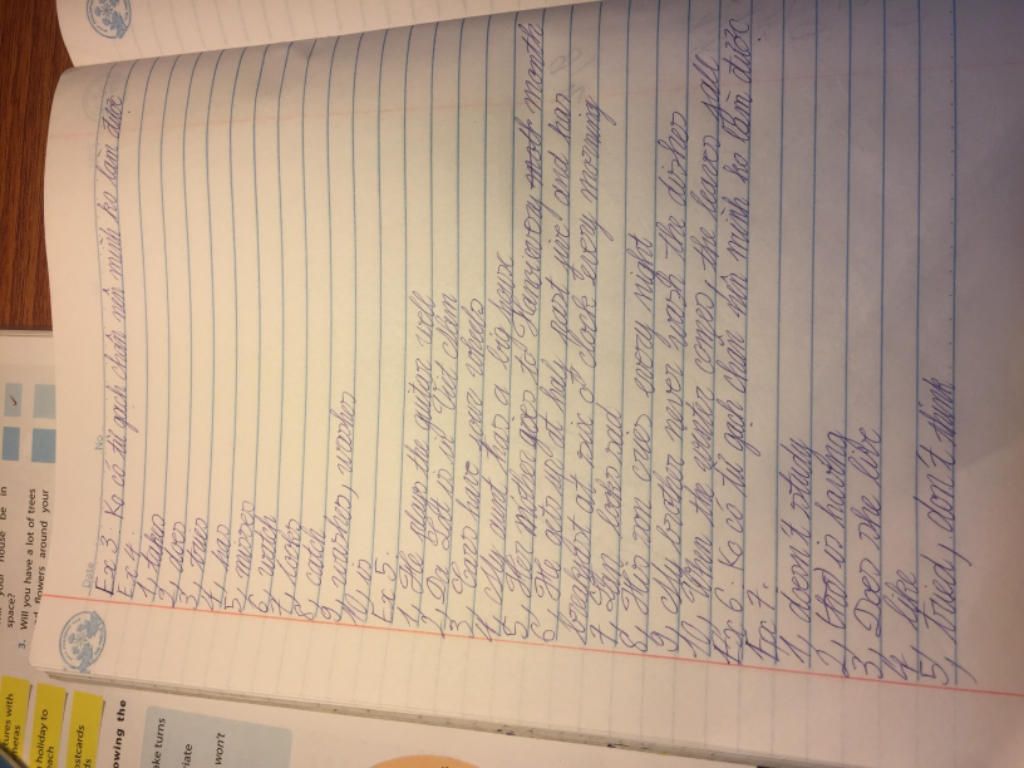 Date No
Ex 3: Ko có từ gạch chân nên mình ko làm được
Ex 4.
1, takes
2, has
3, tries
4, has
5, mixes
6, watch
7, asks
8, catch
9, washes, washes
10, is
Ex 5.
1, He plays the guitar well
2, Do
3, Cars have four wheels
4, My aunt has a big house
5, Her mother goes to every month
6, He gets up at half past five and has
breakfast at six o'clock every morning
7, looks sad
8, His son cries every night
9, My brother never wash the dishes
10, When the winter comes, the leaves fall
Ex 6: Ko có từ gạch chân nên mình ko làm được
Ex 7.
1, doesn't study
2, is having
3, Does she live
4, like
5, don't think
3. Will you have a lot of trees
flowers around your
house be in
space?
ures with
meras
holiday to
each
ostcards
ds
owing the
ake turns
riate
won't